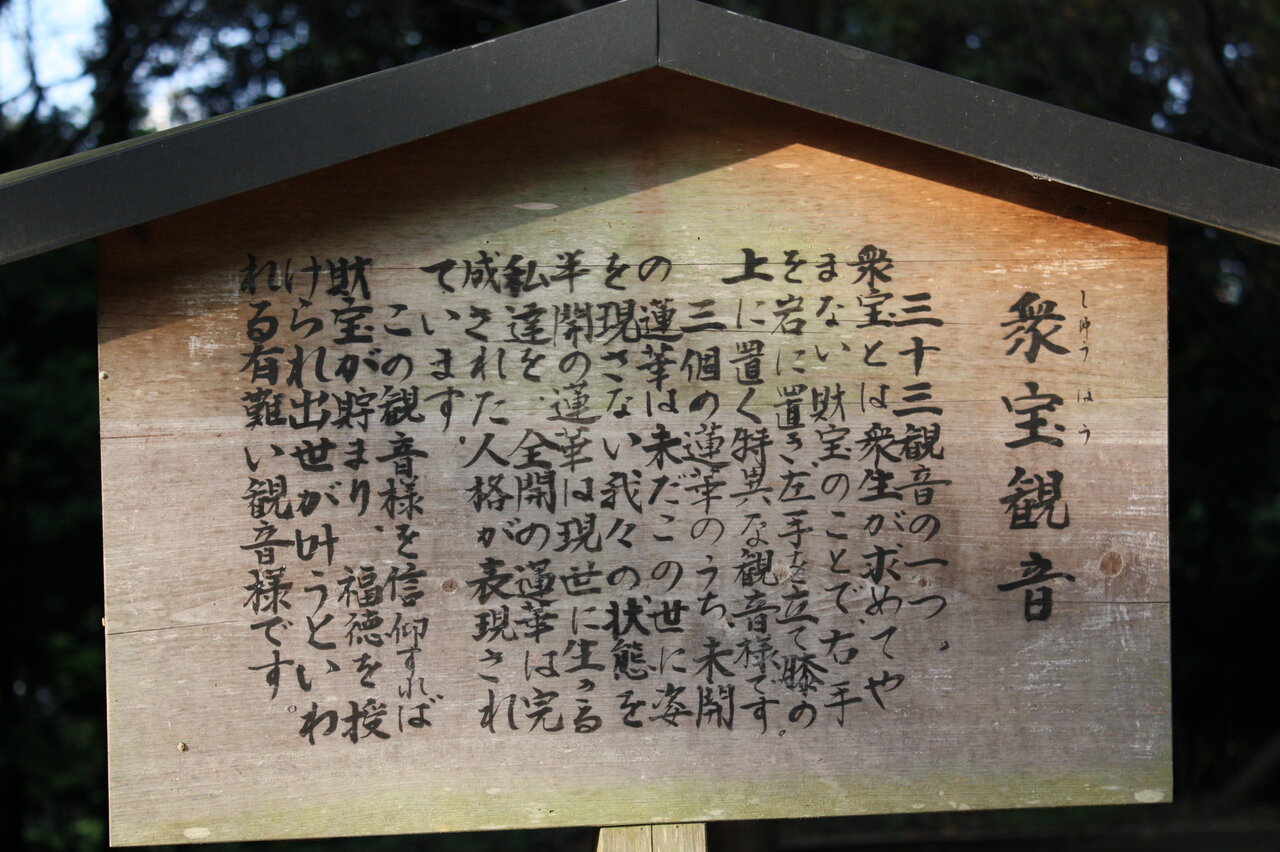 しゅうほう
衆宝観音
三十三観音の一つ。
衆宝とは衆生が求めてや
まない財宝のことで、右手
を岩に置き左手を立て膝の
上に置く特異な観音様です。
三個の蓮華のうち、未開
の蓮華は未だこの世に姿
を現さない我々の状態を
半開の蓮華は現世に
私達を、全開の蓮華は完
成された人格が表現され
ています。
この観音様を信仰すれば
財宝が貯まり、福徳を授
けられ出世が叶うといわ
れる有難い観音様です。